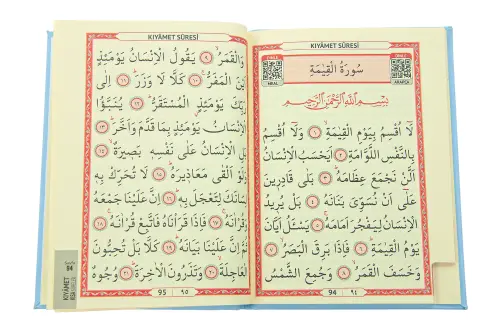 KIYÂMET SÛRESİ
MEAL
ARAPÇA
سُورَةُ الْقِيٰمَةِ
بِسْمِ اللّٰهِ الرَّحْمٰنِ الرَّحِيمِ
لَا اُقْسِمُ بِيَوْمِ الْقِيٰمَةِ ﴿١﴾ وَلَا اُقْسِمُ
بِالنَّفْسِ اللَّوَّامَةِ ﴿٢﴾ اَيَحْسَبُ الْاِنْسَانُ
اَلَّنْ نَجْمَعَ عِظَامَهُ ﴿٣﴾ بَلٰى قَادِرِينَ
عَلٰى اَنْ نُسَوِّىَ بَنَانَهُ ﴿٤﴾ بَلْ يُرِيدُ
الْاِنْسَانُ لِيَفْجُرَ اَمَامَهُ ﴿٥﴾ يَسْـَٔلُ اَيَّانَ
يَوْمُ الْقِيٰمَةِ ﴿٦﴾ فَاِذَا بَرِقَ الْبَصَرُ ﴿٧﴾
وَخَسَفَ الْقَمَرُ ﴿٨﴾ وَجُمِعَ الشَّمْسُ
94 ٩٤
KIYÂMET SÛRESİ
وَالْقَمَرُ ﴿٩﴾ يَقُولُ الْاِنْسَانُ يَوْمَئِذٍ
اَيْنَ الْمَفَرُّ ﴿١٠﴾ كَلَّا لَا وَزَرَ ﴿١١﴾ اِلٰى
رَبِّكَ يَوْمَئِذٍ الْمُسْتَقَرُّ ﴿١٢﴾ يُنَبَّؤُا
الْاِنْسَانُ يَوْمَئِذٍ بِمَا قَدَّمَ وَاَخَّرَ ﴿١٣﴾
بَلِ الْاِنْسَانُ عَلٰى نَفْسِهِ بَصِيرَةٌ ﴿١٤﴾
وَلَوْ اَلْقٰى مَعَاذِيرَهُ ﴿١٥﴾ لَا تُحَرِّكْ بِهِ
لِسَانَكَ لِتَعْجَلَ بِهِ ﴿١٦﴾ اِنَّ عَلَيْنَا جَمْعَهُ
وَقُرْاٰنَهُ ﴿١٧﴾ فَاِذَا قَرَاْنَاهُ فَاتَّبِعْ قُرْاٰنَهُ ﴿١٨﴾
ثُمَّ اِنَّ عَلَيْنَا بَيَانَهُ ﴿١٩﴾ كَلَّا بَلْ تُحِبُّونَ
الْعَاجِلَةَ ﴿٢٠﴾ وَتَذَرُونَ الْاٰخِرَةَ ﴿٢١﴾ وُجُوهٌ
95 ٩٥
Sayfa
94
KIYÂMET